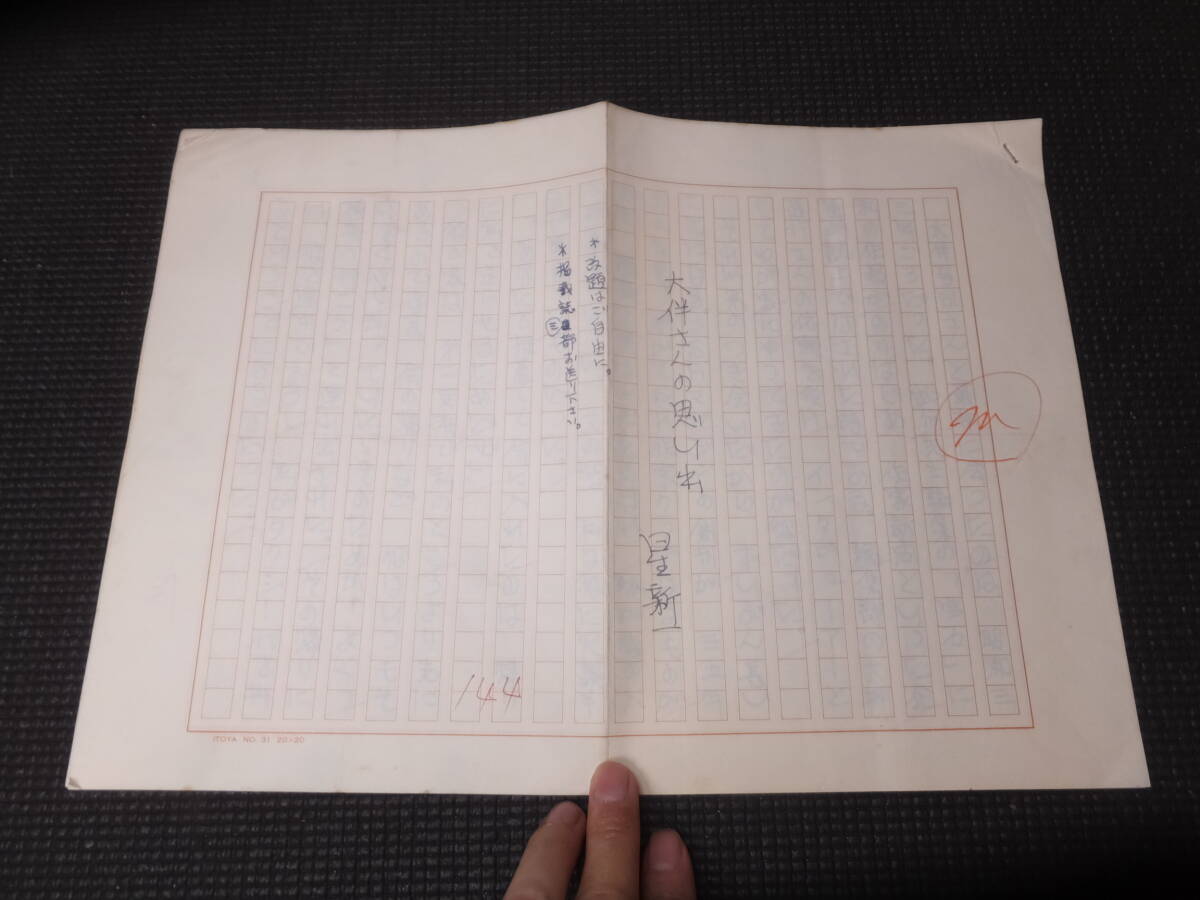 大伴さんの思い出
星新一
*改題はご自由に。
*掲載誌三部お送り下さい。
144
ITOYA NO. 31 20×20